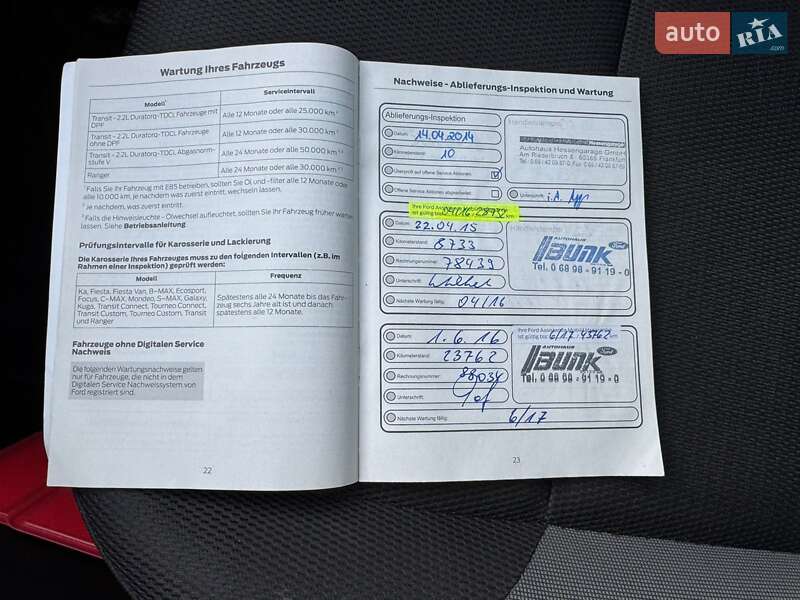 auto RIA .com
Wartung Ihres Fahrzeugs
Modell Serviceintervall
Transit - 2.2L Duratorq-TDCi, Fahrzeuge mit DPF Alle 12 Monate oder alle 25.000 km
Transit - 2.2L Duratorq-TDCi, Fahrzeuge ohne DPF Alle 12 Monate oder alle 30.000 km
Transit - 2.2L Duratorq-TDCi, Abgasnormstufe V Alle 24 Monate oder alle 50.000 km
Ranger Alle 24 Monate oder alle 30.000 km
Falls Sie Ihr Fahrzeug mit E85 betreiben, sollten Sie Öl und -filter alle 12 Monate oder
alle 10.000 km, je nachdem was zuerst eintritt, wechseln lassen.
Je nachdem, was zuerst eintritt.
Falls die Hinweisleuchte - Ölwechsel aufleuchtet, sollten Sie Ihr Fahrzeug früher warten
lassen. Siehe Betriebsanleitung.
Prüfungsintervalle für Karosserie und Lackierung
Die Karosserie Ihres Fahrzeuges muss zu den folgenden Intervallen (z.B. im
Rahmen einer Inspektion) geprüft werden:
Modell Frequenz
Ka, Fiesta, Fiesta Van, B-MAX, Ecosport,
Focus, C-MAX, Mondeo, S-MAX, Galaxy,
Kuga, Transit Connect, Tourneo Connect,
Transit Custom, Tourneo Custom, Transit
und Ranger
Spätestens alle 24 Monate bis das Fahrzeug
sechs Jahre alt ist und danach
spätestens alle 12 Monate.
Fahrzeuge ohne Digitalen Service
Nachweis
Die folgenden Wartungsnachweise gelten
nur für Fahrzeuge, die nicht in dem
Digitalen Service Nachweissystem von
Ford registriert sind.
22
Nachweise - Ablieferungs-Inspektion und Wartung
Ablieferungs-Inspektion
Datum: 14.04.2014
Kilometerstand: 10
Überprüft auf offene Service Aktionen
Offene Service Aktionen abgearbeitet
Händlerstempel
Autohaus Hessengarage GmbH
Unterschrift: i.A.
Datum: 22.04.15
Kilometerstand: 8733
Rechnungsnummer: 78439
Unterschrift:
Nächste Wartung fällig: 04/16
AUTOHAUS
BUNK Ford
Tel. 0 68 98 - 91 19 - 0
Datum: 1.6.16
Kilometerstand: 23762
Rechnungsnummer: 88034
Unterschrift:
Nächste Wartung fällig: 6/17
ist gültig bis: 6/17, 43762 km
AUTOHAUS
BUNK Ford
Tel. 0 68 98 - 91 19 - 0
23